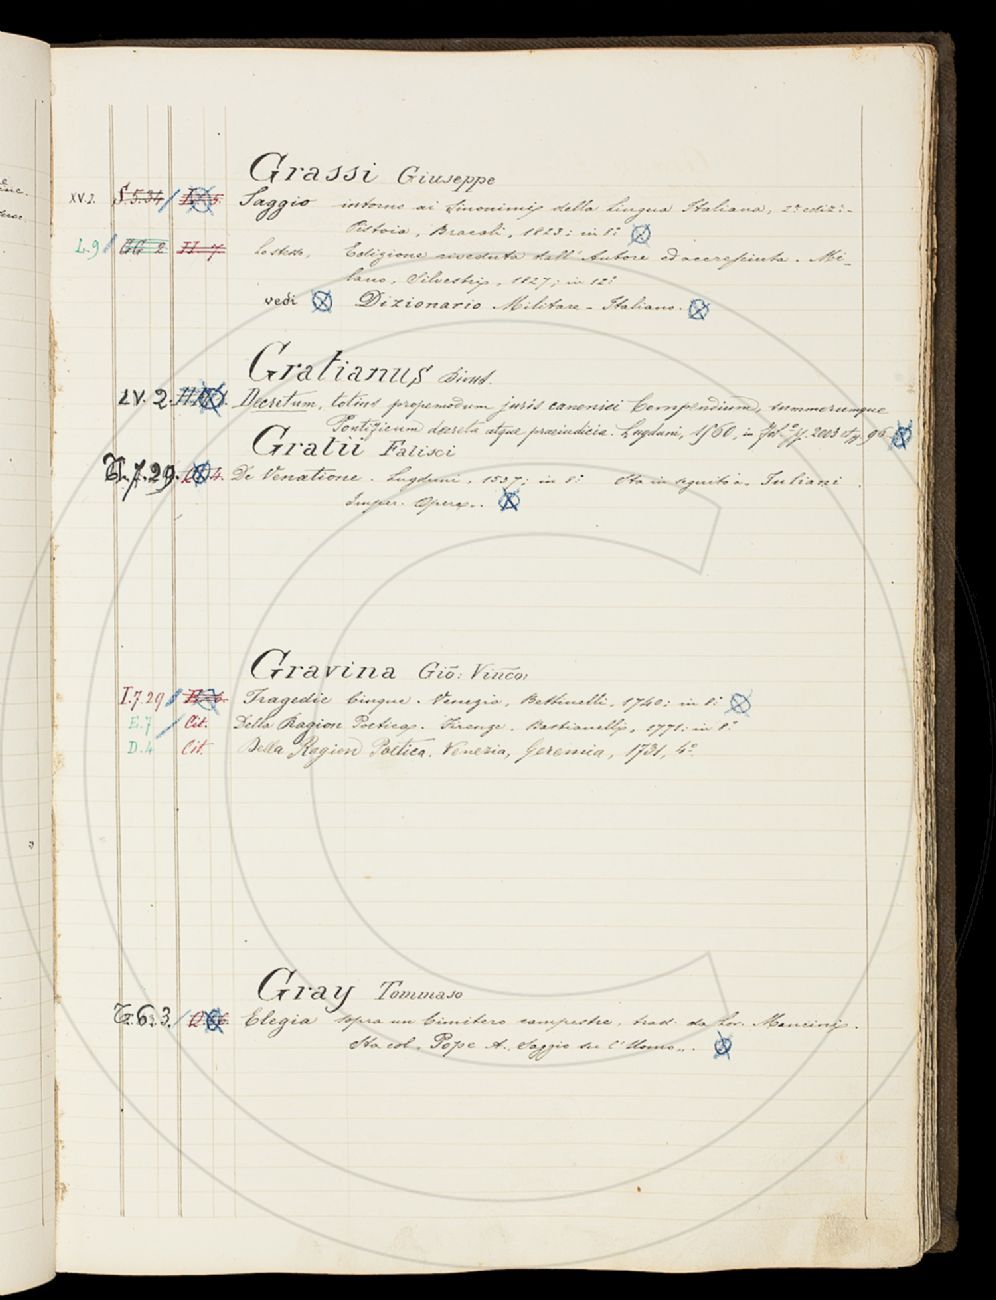 Grassi Giuseppe
XV.2. S.5.34 Saggio intorno ai Sinonimi della Lingua Italiana, 2ª ediz:-
Pistoia, Bracali, 1823; in 8º
L.9 GG 2 H 7 Lo stesso, Edizione riveduta dall'Autore ed accresciuta. Mi-
lano, Silvestri, 1827; in 12º
vedi Dizionario Militare-Italiano.
Gratianus
LV. 2. Decretum, totius propemodum juris canonici Compendium, summorumque
Pontificum decreta atque praeiudicia. Lugduni, 1560, in
Gratii Falisci
7.29. 4. De Venatione. Lugduni, 1537; in 8º Sta in seguito a Juliani
Imper. Opera..
Gravina Gio: Vinco:
I.7.29 Tragedie Cinque. Venezia, Bettinelli, 1740; in 8º
E.7 Cit. Della Ragion Poetica. Firenze, Bastianelli, 1771; in 8º
D.4 Cit. Della Ragion Poetica. Venezia, Geremia, 1731, 4º
Gray Tommaso
6.3. Elegia sopra un Cimitero campestre, trad. da Lor. Mancini.
Sta col. Pope A. Saggio su l'Uomo..